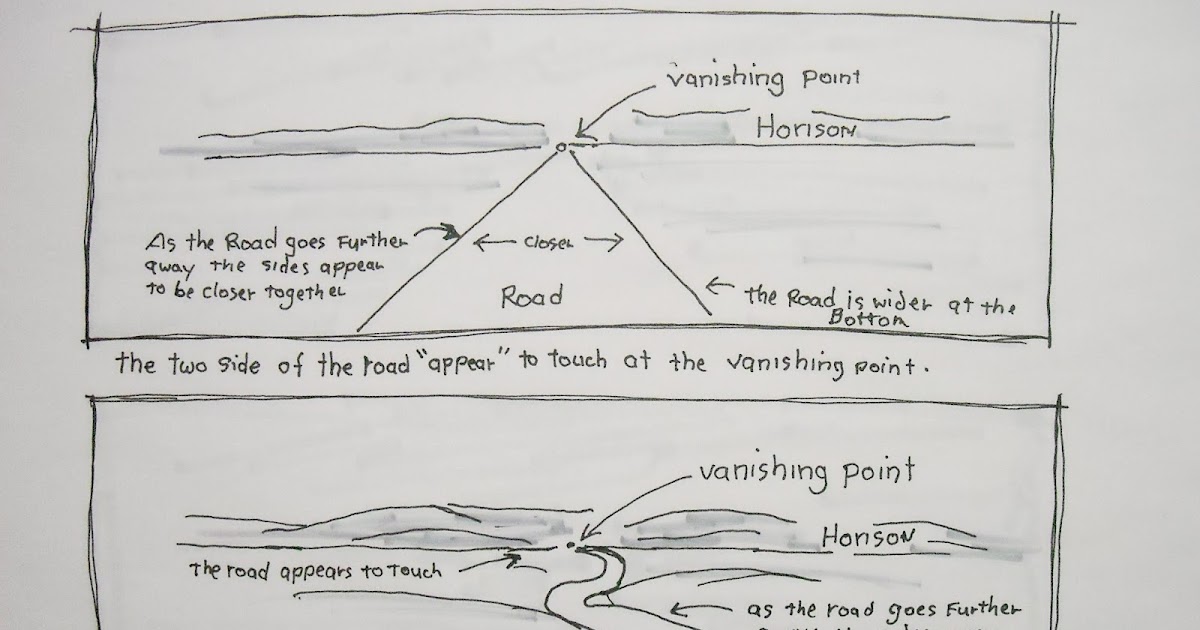 vanishing point
Horison
As the Road goes Further
away the sides appear
to be closer together
closer
Road
the Road is wider at the
Bottom
the two side of the road "appear" to touch at the vanishing point.
vanishing point
Horison
The road appears to touch
as the road goes Further